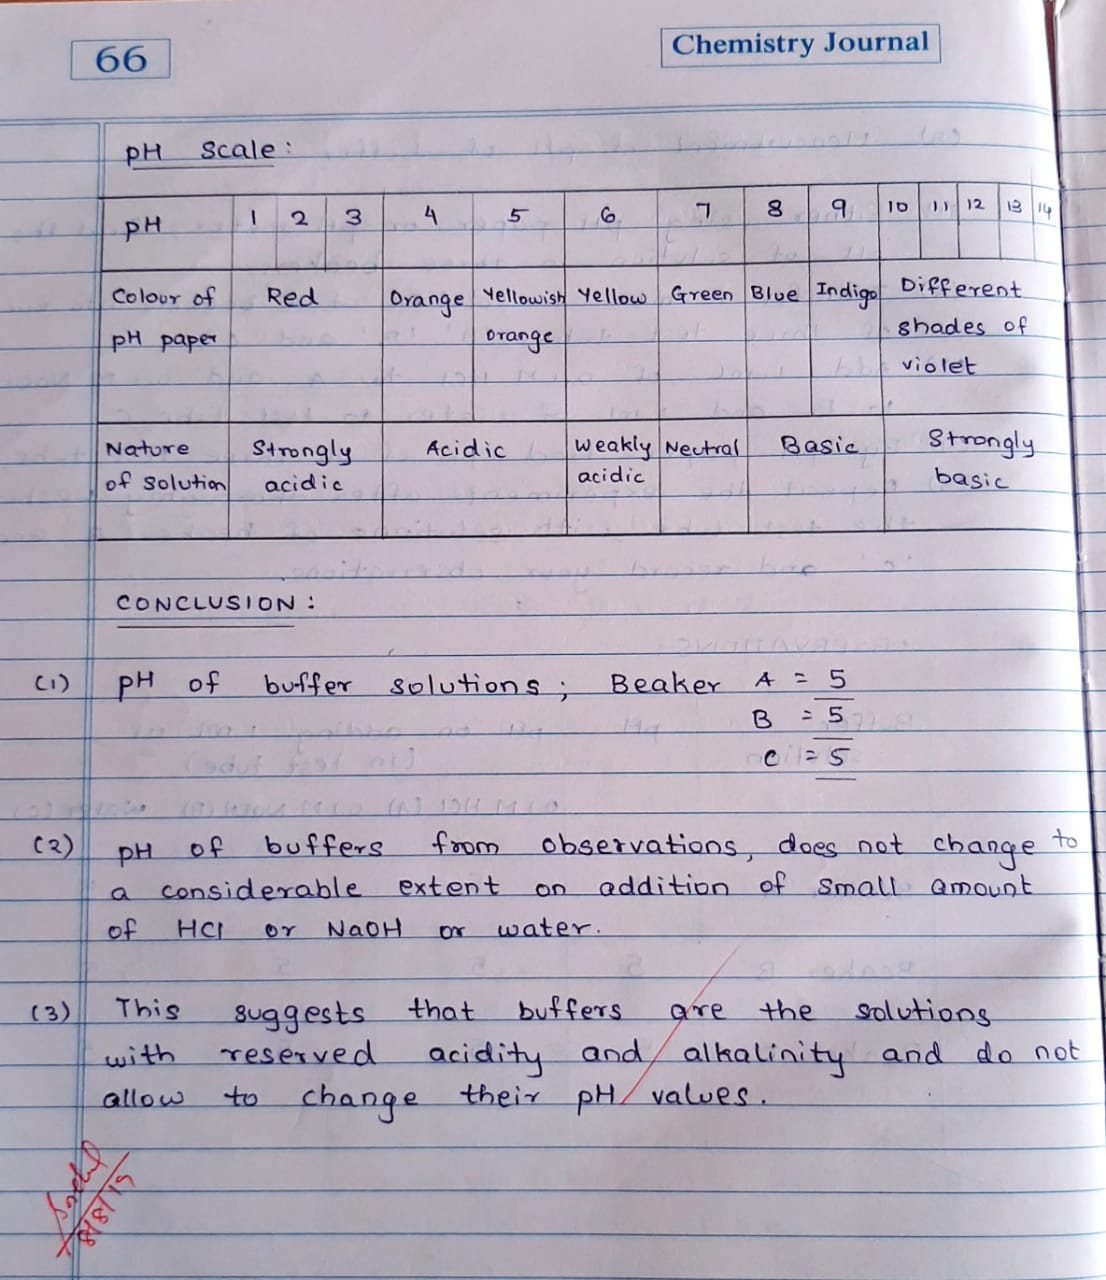 66
Chemistry Journal
pH scale :
pH 1 2 3 4 5 6 7 8 9 10 11 12 13 14
Colour of Red Orange Yellowish Yellow Green Blue Indigo Different
pH paper orange shades of
violet
Nature Strongly Acidic weakly Neutral Basic Strongly
of solution acidic acidic basic
CONCLUSION :
(1) pH of buffer solutions ; Beaker A = 5
B = 5
C = 5
(2) pH of buffers from observations, does not change to
a considerable extent on addition of small amount
of HCl or NaOH or water.
(3) This suggests that buffers are the solutions
with reserved acidity and alkalinity and do not
allow to change their pH values.
8/8/19